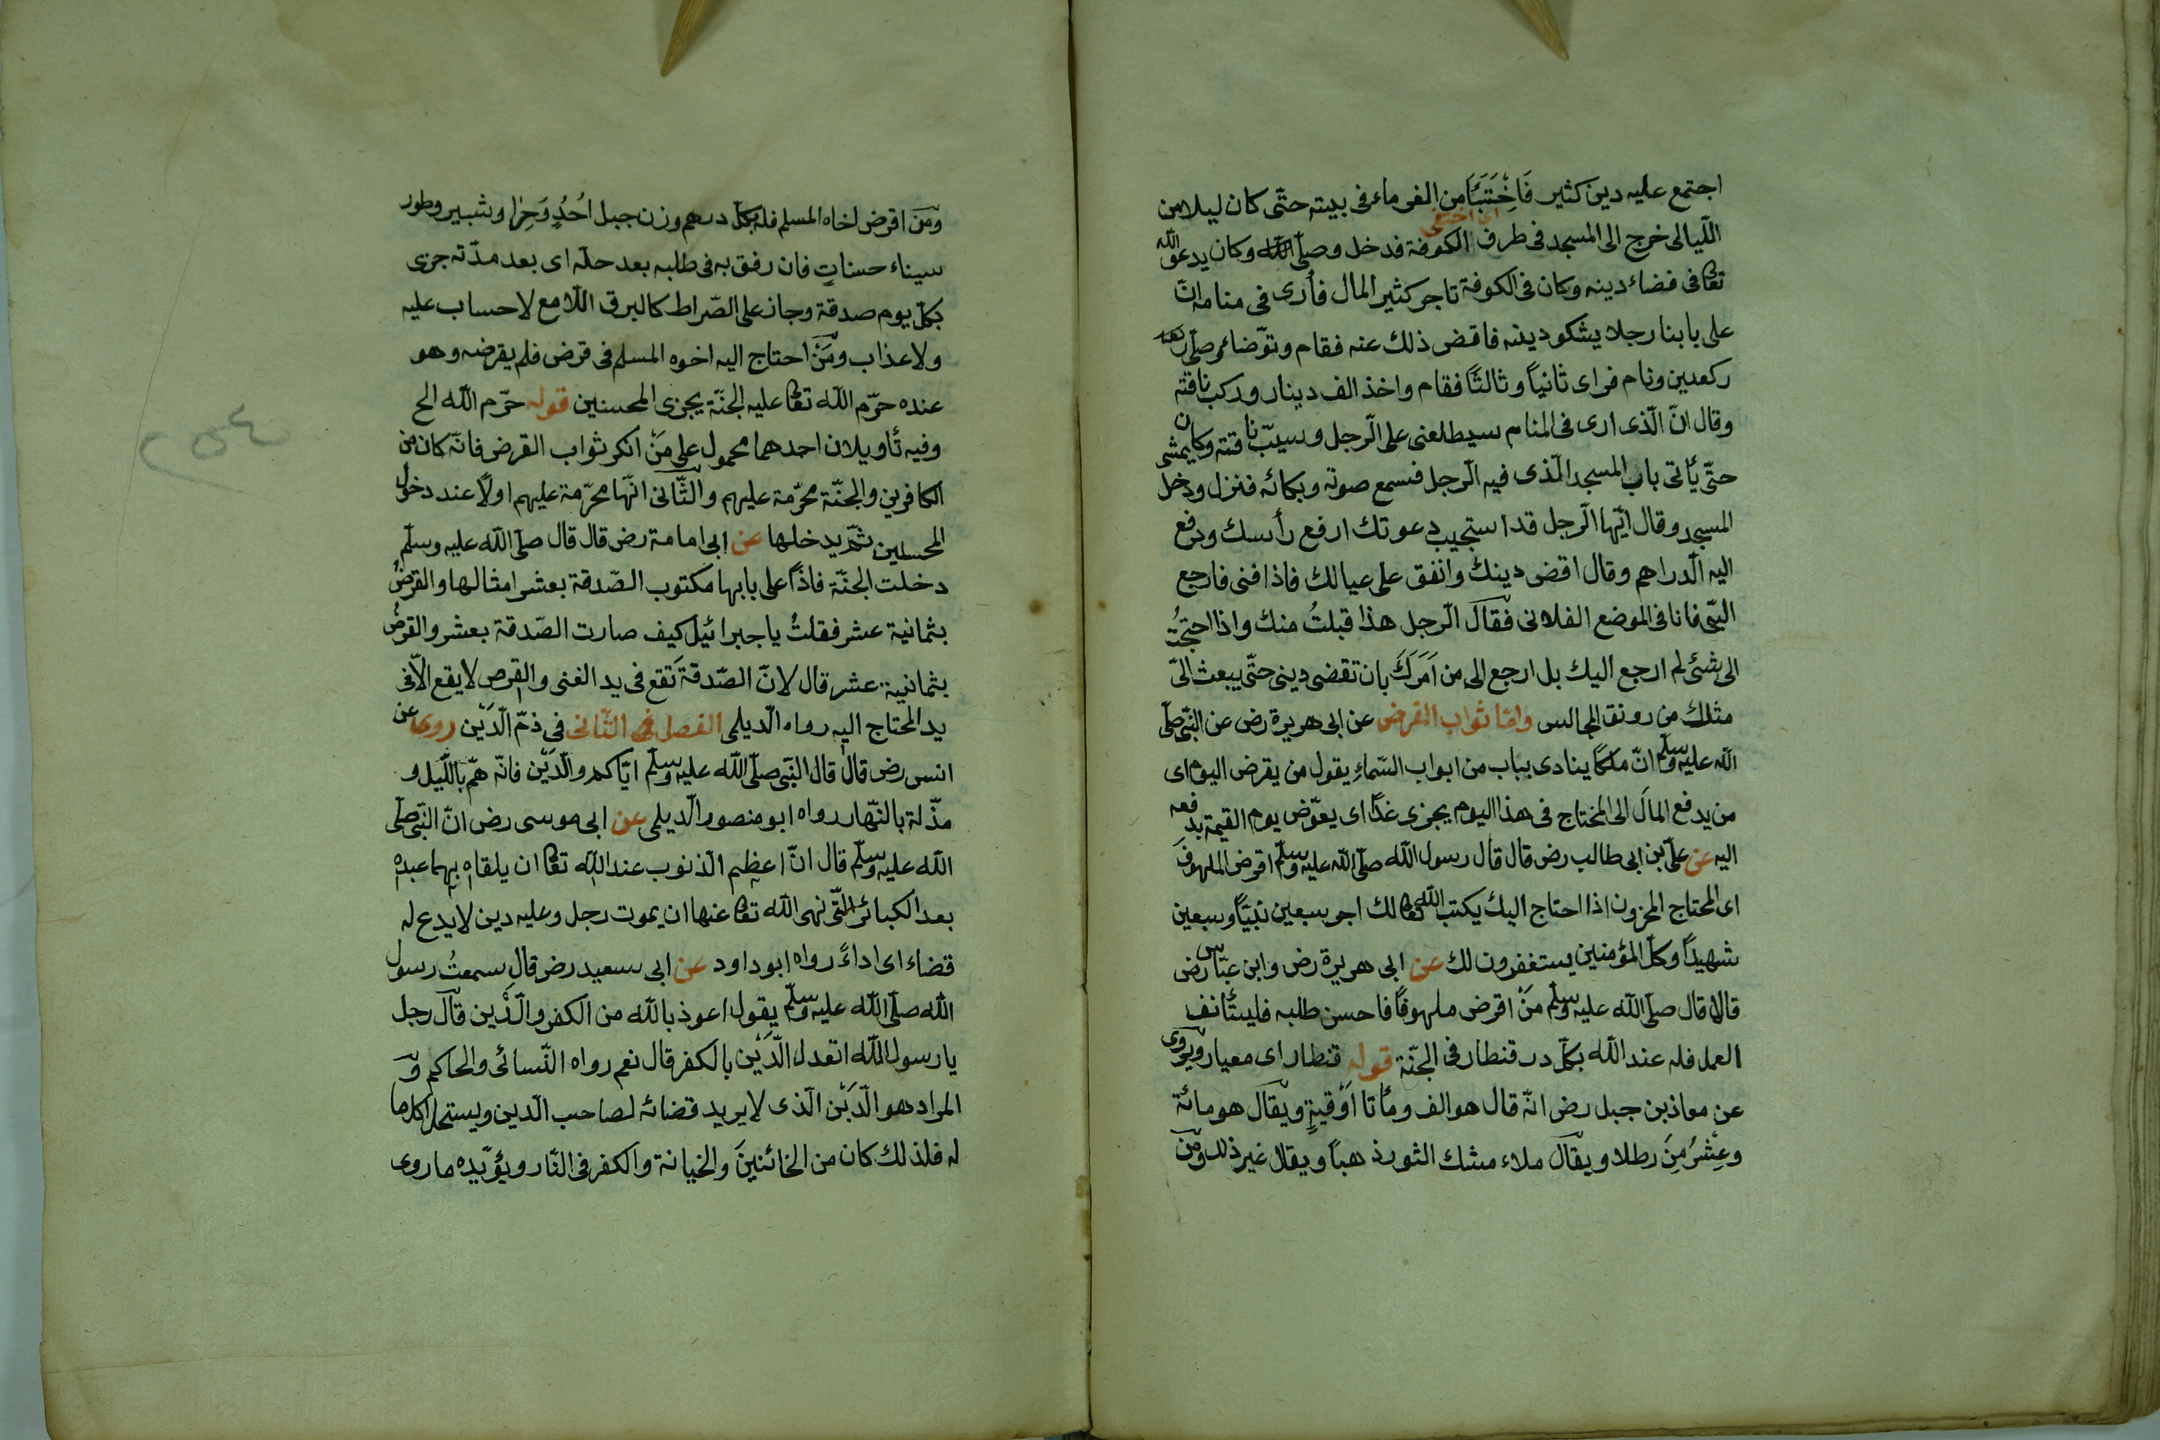 اجتمع عليه دين كثير فَاِخْتَبَأَ من الغرماء فى بيته حتّى كان ليلا من
اى اختفى
اللّيالى خرج الى المسجد فى طرف الكوفة فدخل وصلّى لِلّه وكان يدعو اللّه
تعا فى قضاء دينه وكان فى الكوفة تاجر كثير المال فأرى فى منامه انّ
على بابنا رجلا يشكو دينه فاقض ذلك عنه فقام وتوّضاء وصلّى
ركعتين ونام فراى ثانياً وثالثاً فقام واخذ الف دينار وركب ناقته
وقال انّ الّذى ارى فى المنام سيطلعنى على الّرجل وسيّب ناقته وكان يمشى
حتّى يأتى باب المسجد الّذى فيه الّرجل فسمع صوته وبكائه فنزل ودخل
المسجد وقال ايّها الّرجل قد استجيب دعوتك ارفع رأسك ودفع
اليه الّدراهم وقال اقض دينك وانفق على عيالك فاذا فنى فارجع
الىّ فانا فى الموضع الفلانى فقال الّرجل هذا قبلتُ منك واذا احتجتُ
الى شئ لم ارجع اليك بل ارجع الى من اَمَرَكَ بان تقضى دينى حتّى يبعث الىّ
مثلك من رونق المجالس وامّا ثواب القرض عن ابى هريرة رض عن النّبى صلّى
اللّه عليه وسلّم انّ ملكاً ينادى بباب من ابواب السّماءِ يقول من يقرض اليوم اى
من يدفع المالَ الى المختاج فى هذا اليوم يجزى غداً اى يعوّض يوم القيمة بدفعه
اليه عن علىّ بن ابى طالب رض قال قال رسول اللّه صلّى اللّه عليه وسلّم اقرض الملهوفَ
اى المحتاج المحزون اذا احتاج اليك يكتب اللّه تعا لك اجر سبعين نبيّاً وسبعين
شهيداً وكلّ المؤمنين يستغفرون لك عن ابى هريرة رض وابن عبّاس رض
قالا قال صلّى اللّه عليه وسلّم مَنْ اقرض ملهوفاً فاحسن طلبه فليستأنف
العمل فله عند اللّه بكلّ در قنطار فى الجنّة قوله قنطار اى معيار ويروى
عن معاذ بن جبل رض انّه قال هو الف ومأتا اَوْقيةٍ ويقال هو مائة
وعِشْرُمِنَ رطلا ويقال ملاء مسْك الثور ذهباً ويقال غير ذلك ومَنْ
ومَنَ اقرض اخاه المسلم فله بكلّ درهم وزن جبل اُحُدٍ وَحِرٰا وشبير وطور
سيناء حسناتٍ فان رفق به فى طلبه بعد حلّه اى بعد مدّته جزى
بكلّ يوم صدقة وجاز على الصّراط كالبرق اللّامع لا حساب عليه
ولا عذاب ومَنْ احتاج اليه اخوه المسلم فى قرض فلم يقرضه وهو
عنده حرّم اللّه تعا عليه الجنّة يجزى المحسنين قوله حرّم اللّه الخ
وفيه تأويلان احدهما محمول على مَنْ انكر ثواب القرض فانّه كان من
الكافرين والجنّة محرّمة عليهم والثّانى انّها محرّمة عليهم اولاً عند دخول
المحسنين ثمّ يدخلها عن ابى امامة رض قال قال صلّى اللّه عليه وسلّم
دخلت الجنّة فاذاً على بابها مكتوب الصّدقة بعشر امثالها والقرضُ
بثمانية عشر فقلتُ يا جبرائيل كيف صارت الصّدقة بعشر والقرضُ
بثمانية عشر قال لانّ الصّدقة تَقع فى يد الغنى والقرض لا يقع الّا فى
يد المحتاج اليه رواه الّديلمى الفصل الثّانى فى ذمّ الّدَيْن روى عن
انس رض قال قال النّبى صلّى اللّه عليه وسلّم ايّاكم والّدَيْن فانّه همّ بالّليل و
مذّلة بالنّهار رواه ابو منصور الّديلى عن ابى موسى رض انّ النّبى صلّى
اللّه عليه وسلّم قال انّ اعظم الّذنوب عند اللّه تعا ان يلقاه بها عبده
بعد الكبائر الّتى نهى اللّه تعا عنها ان يموت رجل وعليه دين لا يدع له
قضاء اى اداءً رواه ابو داود عن ابى سعيد رض قال سمعتُ رسول
اللّه صلّى اللّه عليه وسلّم يقول اعوذ باللّه من الكفر والّدَيْن قال رجل
يا رسول اللّه اتعدل الّدَيْن بالكفر قال نعم رواه النّسائى والحاكم و
المراد هو الّدَيْن الّذى لا يريد قضائه لصاحب الّدين ويستحلّ اكله ما
له فلذلك كان من الخائنينَ والخيانة والكفر فى النّار ويؤيّده ما روى